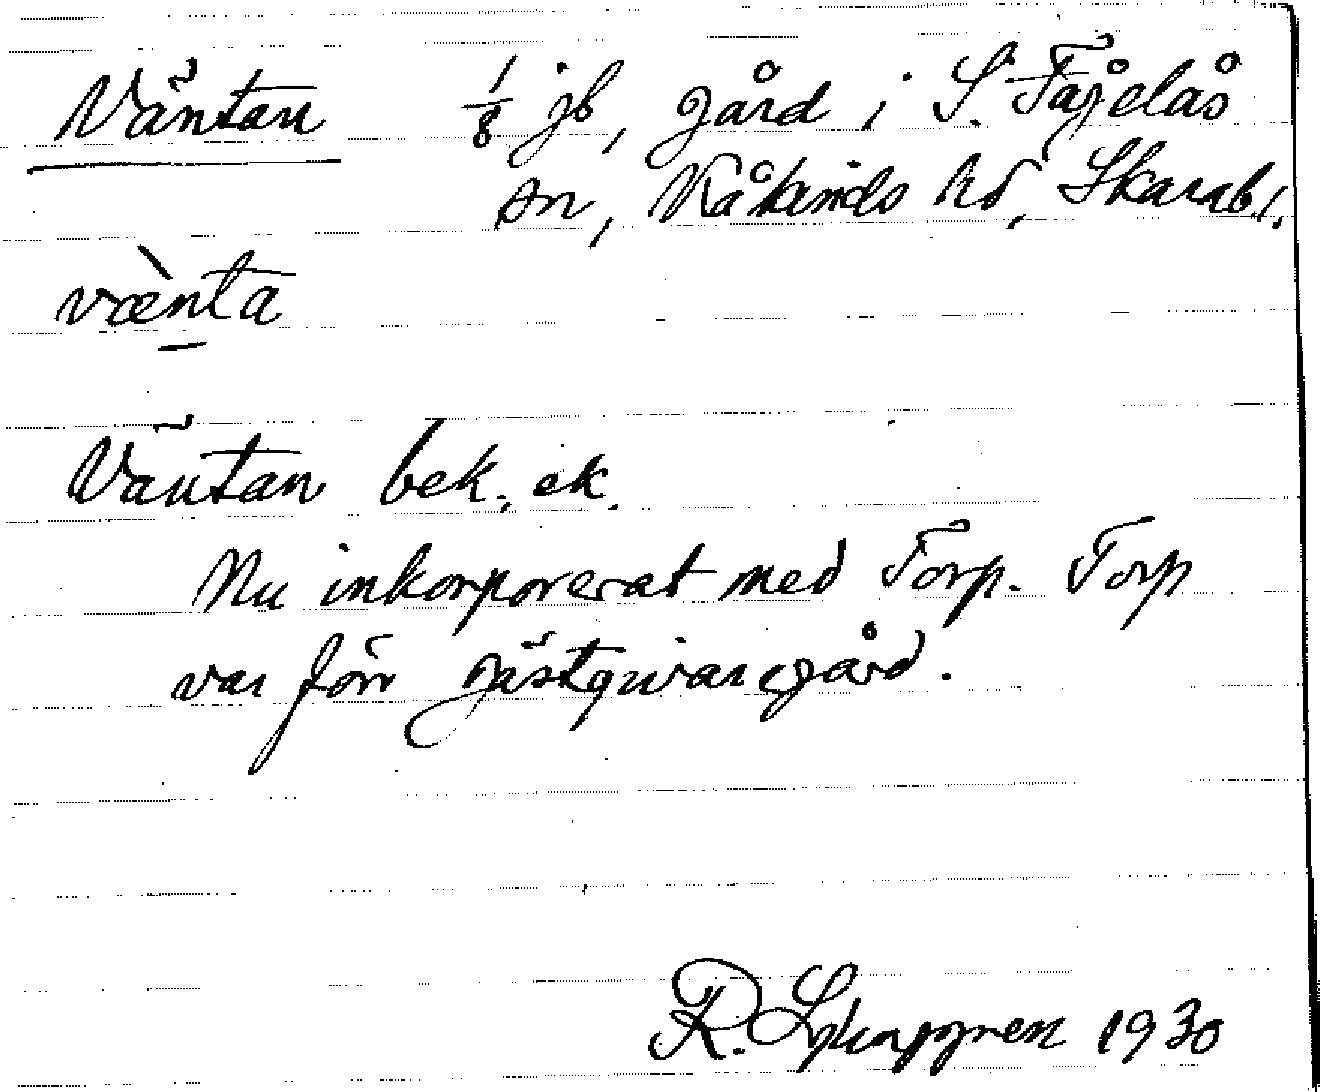 Väntan 1/8 jb, gård i S. Fågelås
sn, Kåkinds hd, Skarab l.
vænta
Väntan bek. ek.
Nu inkorporerat med Torp. Torp
var förr gästgivaregård.
R. Ljunggren 1930